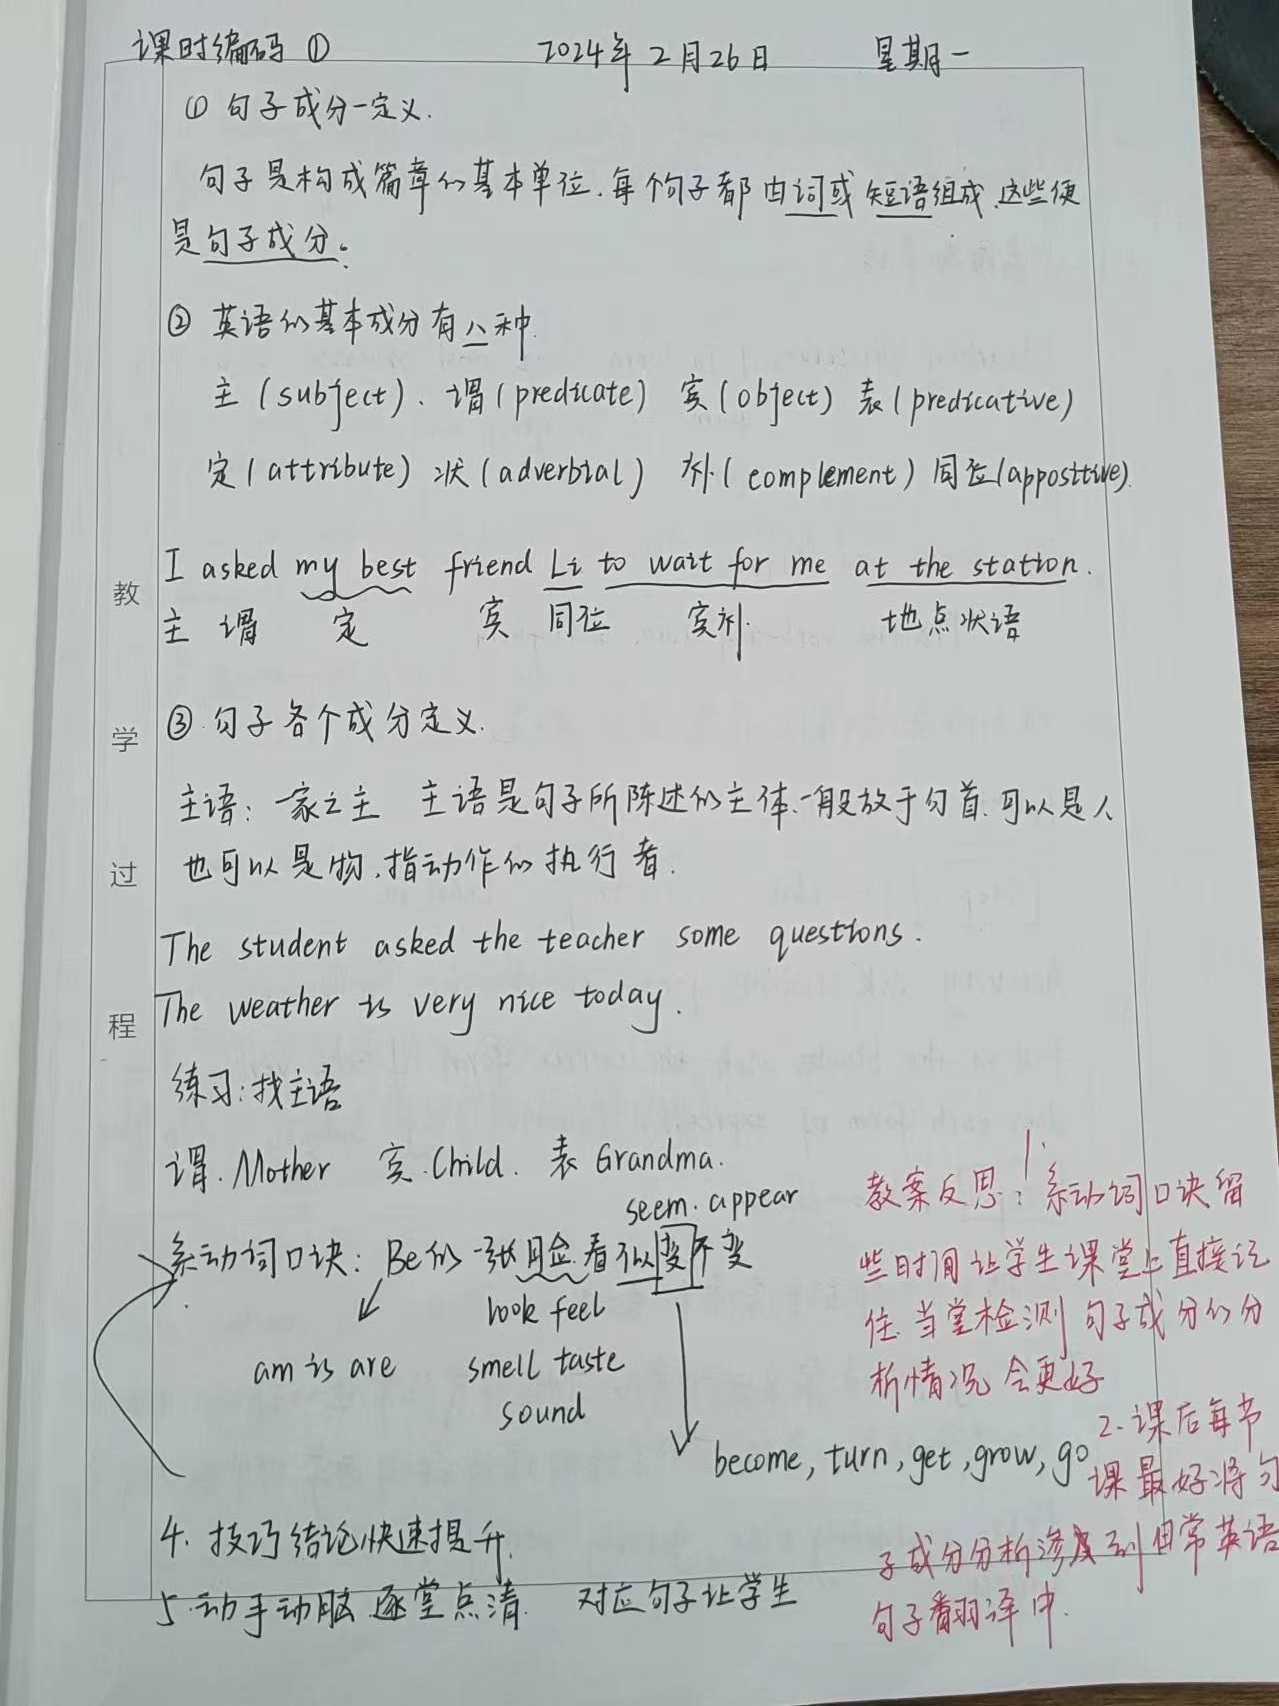 课时编码 ① 2024年2月26日 星期一
① 句子成分-定义.
句子是构成篇章的基本单位.每个句子都由词或短语组成.这些便
是句子成分.
② 英语的基本成分有八种.
主(subject)、谓(predicate) 宾(object) 表(predicative)
定(attribute) 状(adverbial) 补(complement) 同位(appositive).
I asked my best friend Li to wait for me at the station.
主 谓 定 宾 同位 宾补. 地点状语
③.句子各个成分定义.
主语: 一家之主 主语是句子所陈述的主体.一般放于句首.可以是人
也可以是物.指动作的执行者.
The student asked the teacher some questions.
The weather is very nice today.
练习:找主语
谓.Mother 宾.Child. 表 Grandma.
seem. appear
系动词口诀: Be的一张脸.看似变不变
look feel
am is are smell taste
sound
become, turn, get, grow, go
4. 技巧结论快速提升.
5.动手动脑 逐堂点清. 对应句子让学生
教学过程
教案反思: 1.系动词口诀留
些时间让学生课堂上直接记
住.当堂检测句子成分的分
析情况会更好
2.课后每节
课最好将句
子成分分析渗透到日常英语
句子翻译中.